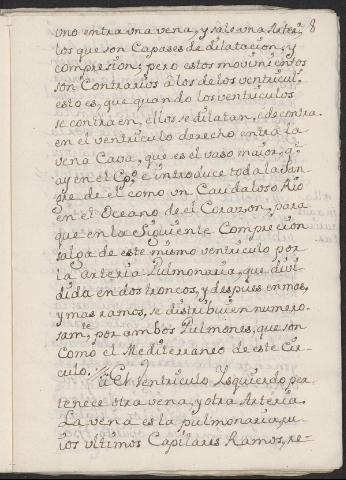 uno entra una vena, y sale una Arter, 8
los que son Capases de dilatacion, y
compresion; pero estos movimientos
son Contrarios à los de los ventricul,
esto es, que quando los ventriculos
se contraen, ellos se dilatan, e contra.
en el ventriculo derecho entra la
vena Cava, que es el vaso maior, q̃
ay en el Cpº e introduce toda la san-
gre de el como un Caudaloso Rio
en el Oceano de el Corazon, para
que en la Siguiente Compresion
salga de este mismo ventriculo por
la Arteria Pulmonaria, que divi
dida en dos troncos, y despues en mas,
y mas ramos, se distribuien numero-
samte, por ambos Pulmones, que son
Como el Mediterraneo de este Cir-
culo. // à El Ventriculo Izquierdo per
tenece otra vena, y otra Arteria.
La vena es la pulmonaria, cu
ios ultimos Capilares Ramos, re-